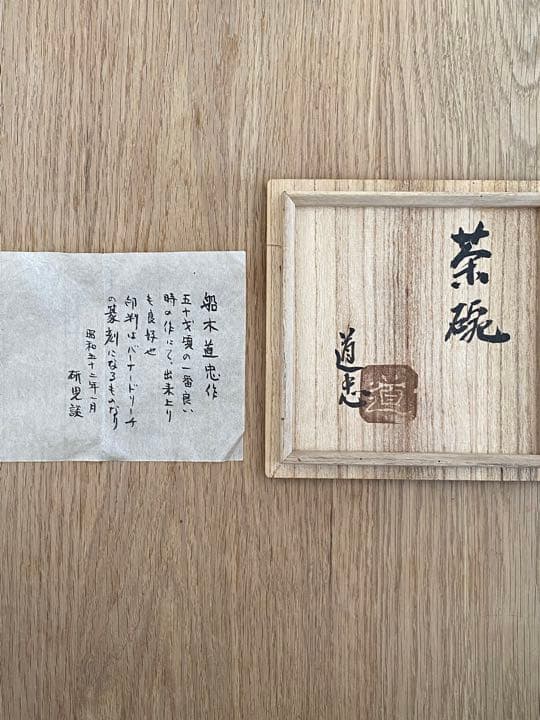 茶碗
道忠
道
船木道忠作
五十才頃の一番良い
時の作にて、出来上り
も良好也
印判はバーナードリーチ
の篆刻になるものなり
昭和五十二年一月
研児談